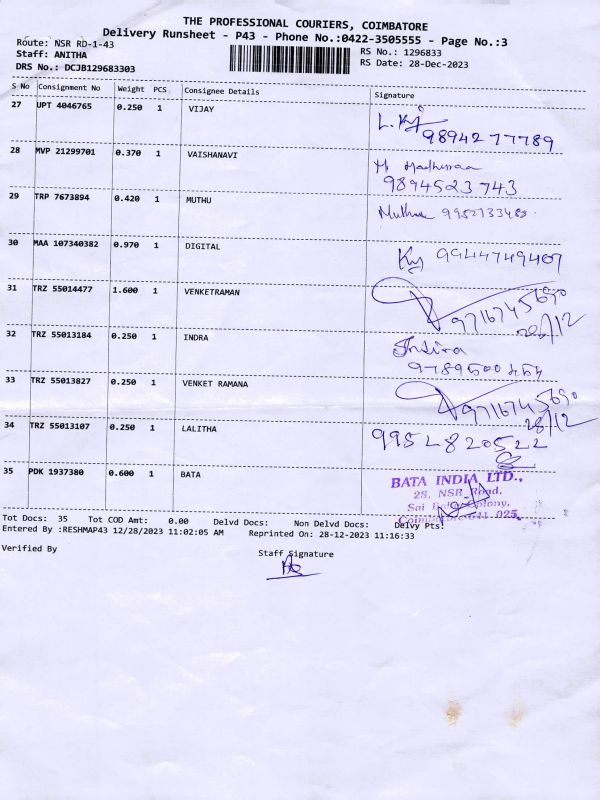 THE PROFESSIONAL COURIERS, COIMBATORE
Delivery Runsheet - P43 - Phone No.:0422-3505555 - Page No.:3
Route: NSR RD-1-43
RS No.: 1296833
Staff: ANITHA
RS Date: 28-Dec-2023
DRS No.: DCJB129683303
S No Consignment No Weight PCS Consignee Details Signature
27 UPT 4046765 0.250 1 VIJAY
9894277789
28 MVP 21299701 0.370 1 VAISHANAVI
9894523743
29 TRP 7673894 0.420 1 MUTHU
30 MAA 107340382 0.970 1 DIGITAL
9944749407
31 TRZ 55014477 1.600 1 VENKETRAMAN
9716745690
28/12
32 TRZ 55013184 0.250 1 INDRA Indira
33 TRZ 55013827 0.250 1 VENKET RAMANA
9716745690
28/12
34 TRZ 55013107 0.250 1 LALITHA
35 PDK 1937380 0.600 1 BATA
BATA INDIA LTD.,
28, NSR Road,
Sai Baba Colony,
Coimbatore-641 025.
Tot Docs: 35 Tot COD Amt: 0.00 Delvd Docs: Non Delvd Docs: Delvy Pts:
Entered By :RESHMAP43 12/28/2023 11:02:05 AM Reprinted On: 28-12-2023 11:16:33
Verified By Staff Signature